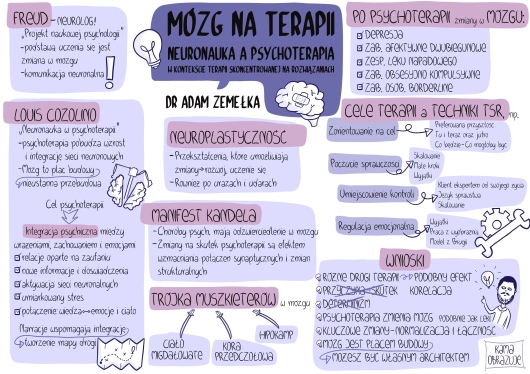 FREUD - NEUROLOG!
"Projekt naukowej psychologii"
-podstawą uczenia się jest
zmiana w mózgu
-komunikacja neuronalna
LOUIS COZOLINO
"Neuronauka w psychoterapii"
-psychoterapia pobudza wzrost
i integrację sieci neuronowych
-Mózg to plac budowy
nieustanna przebudowa
Cel psychoterapii
Integracja psychiczna między
wrażeniami, zachowaniem i emocjami
relacje oparte na zaufaniu
nowe informacje i doświadczenia
aktywacja sieci neuronalnych
umiarkowany stres
połączenie wiedza emocje i ciało
Narracje wspomagają integrację
tworzenie mapy drogi
MÓZG NA TERAPII
NEURONAUKA A PSYCHOTERAPIA
W KONTEKŚCIE TERAPII SKONCENTROWANEJ NA ROZWIĄZANIACH
DR ADAM ZEMEŁKA
NEUROPLASTYCZNOŚĆ
-Przekształcenia, które umożliwiają
zmiany rozwój, uczenie się
-Również po urazach i udarach
MANIFEST KANDELA
-Choroby psych. mają odzwierciedlenie w mózgu
-Zmiany na skutek psychoterapii są efektem
wzmacniania połączeń synaptycznych i zmian
strukturalnych
TRÓJKA MUSZKIETERÓW w mózgu
CIAŁO
MIGDAŁOWATE
KORA
PRZEDCZOŁOWA
HIPOKAMP
PO PSYCHOTERAPII zmiany w MÓZGU:
DEPRESJA
ZAB. AFEKTYWNE DWUBIEGUNOWE
ZESP. LĘKU NAPADOWEGO
ZAB. OBSESYJNO KOMPULSYWNE
ZAB. OSOB. BORDERLINE
CELE TERAPII a TECHNIKI TSR, np.
Zorientowanie na cel
Preferowana przyszłość
Tu i teraz oraz jutro
Co będzie-Co mogłoby być
Poczucie sprawczości
Skalowanie
Małe kroki
Wyjątki
Umiejscowienie kontroli
Klient ekspertem od swojego życia
Język sprawstwa
Skalowanie
Regulacja emocjonalna
Wyjątki
Praca z wyobrażeniem
Model z Brugii
WNIOSKI
RÓŻNE DROGI TERAPII PODOBNY EFEKT
PRZYCZYNA SKUTEK KORELACJA
DETERMINIZM
PSYCHOTERAPIA ZMIENIA MÓZG PODOBNIE JAK LEKI
KLUCZOWE ZMIANY-NORMALIZACJA I ŁĄCZNOŚĆ
MÓZG JEST PLACEM BUDOWY
MOŻESZ BYĆ WŁASNYM ARCHITEKTEM
KAMA
OBRAZUJE